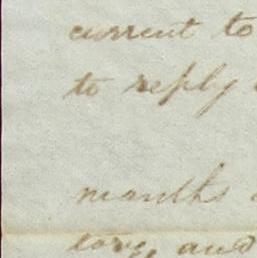 current to
to reply
months
love, and